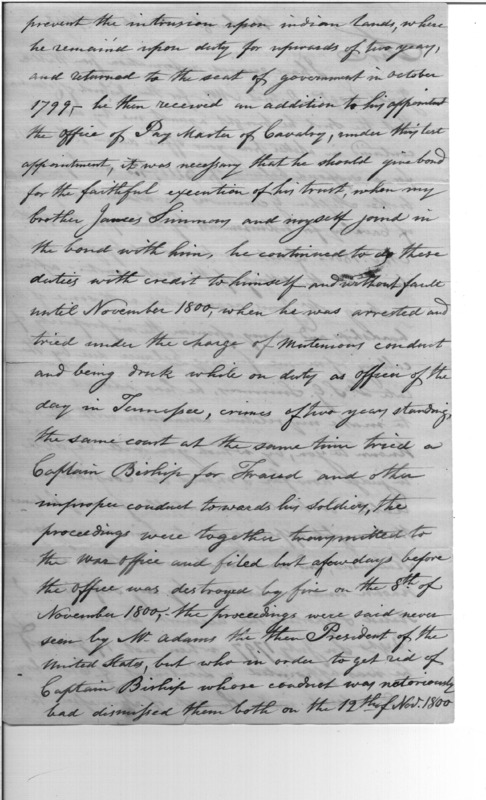 prevent the intrusion upon indian lands, where
he remained upon duty for upwards of two years,
and returned to the seat of government in October
1799,- he then received an addition to his appointment
the office of Pay Master of Cavalry, under this last
appointment, it was necessary that he should give bond
for the faithful execution of his trust, when my
brother James Simmons and myself joind in
the bond with him, he continued to do these
duties with credit to himself and without fault
until November 1800, when he was arrested and
tried under the charge of mutenious conduct
and being drunk while on duty as officer of the
day in Tennessee, crimes of two years standing,
the same court at the same time tried a
Captain Bishop for Fraud and other
improper conduct towards his soldiers, the
proceedings were together transmitted to
the war office and filed but a few days before
the office was destroyed by fire on the 8th of
November 1800,- the proceedings were said never
seen by Mr Adams the then President of the
United States, but who in order to get rid of
Captain Bishop whose conduct was notoriously
bad dismissed them both on the 12th of Nov. 1800